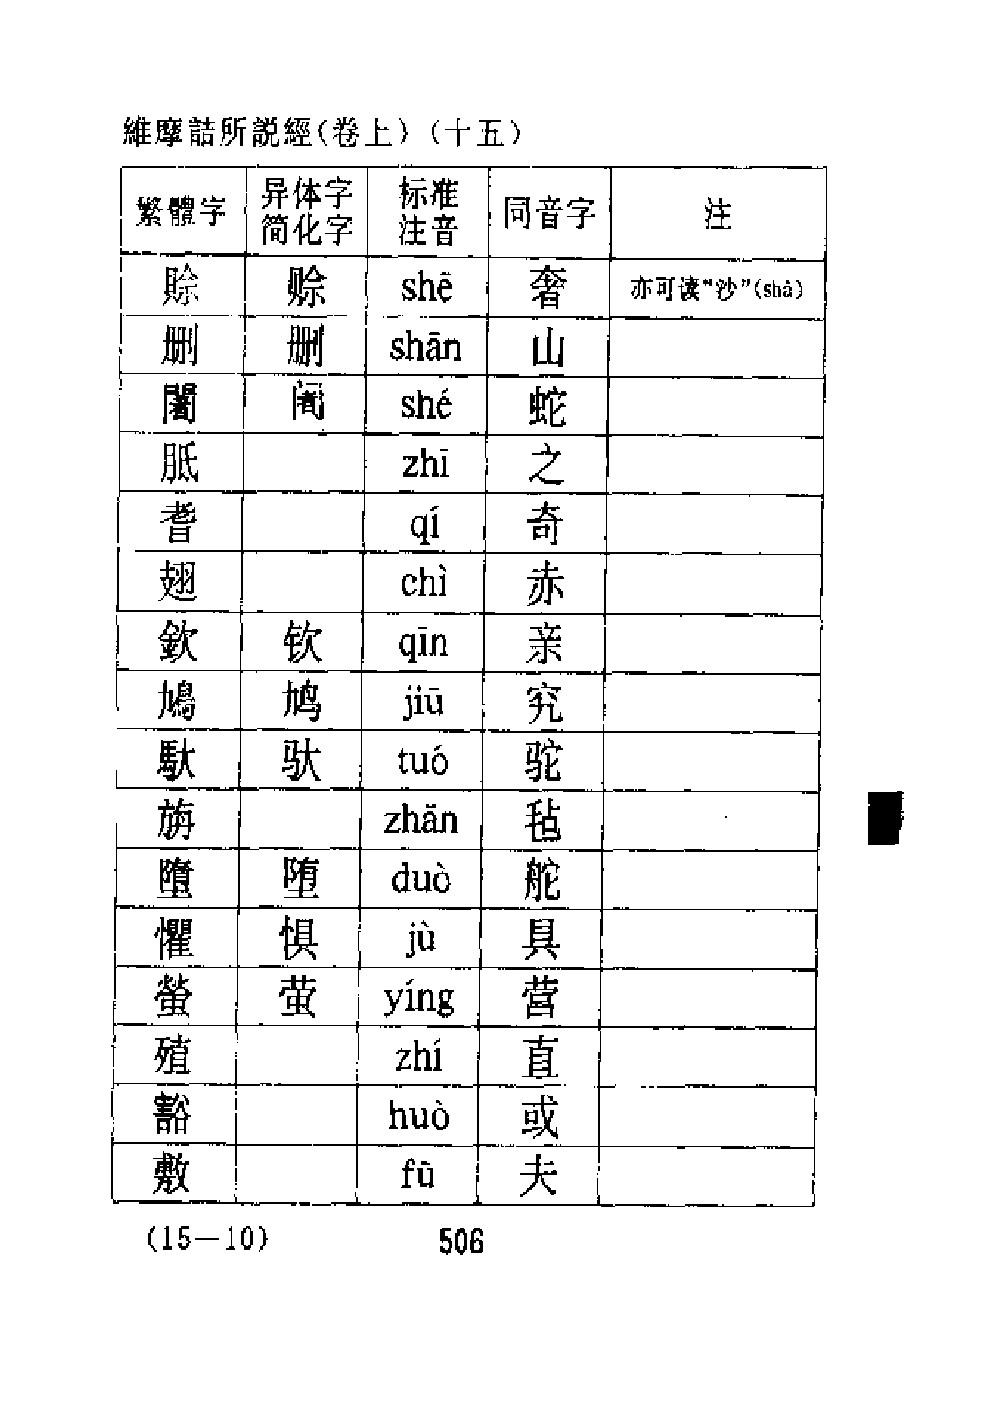 維摩詰所説經(卷上)(十五)
繁體字 异体字简化字 标准注音 同音字 注
賒 赊 shē 奢 亦可读“沙”(shā)
删 刪 shān 山
闍 阇 shé 蛇
胝 zhī 之
耆 qí 奇
翅 chì 赤
欽 钦 qīn 亲
鳩 鸠 jiū 究
馱 驮 tuó 驼
旃 zhān 毡
墮 堕 duò 舵
懼 惧 jù 具
螢 萤 yíng 营
殖 zhí 直
豁 huò 或
敷 fū 夫
(15—10) 506